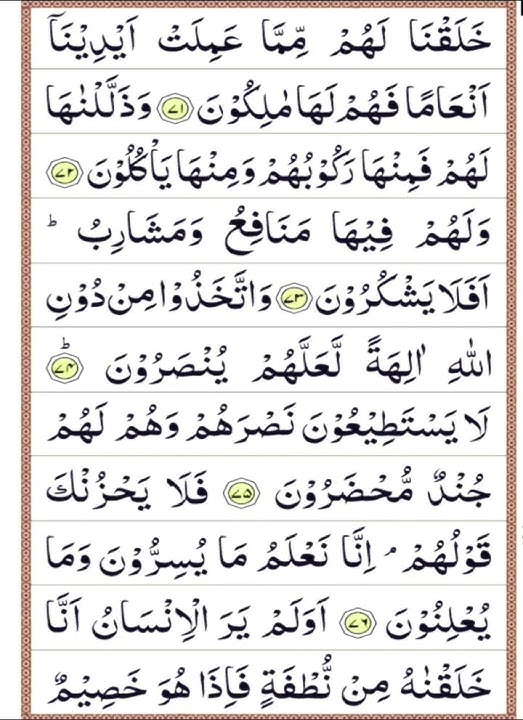 خَلَقْنَا لَهُمْ مِّمَّا عَمِلَتْ اَيْدِيْنَاۤ
اَنْعَامًا فَهُمْ لَهَا مٰلِكُوْنَ ﴿۷۱﴾ وَذَلَّلْنٰهَا
لَهُمْ فَمِنْهَا رَكُوْبُهُمْ وَمِنْهَا يَاْكُلُوْنَ ﴿۷۲﴾
وَلَهُمْ فِيْهَا مَنَافِعُ وَمَشَارِبُ ؕ
اَفَلَا يَشْكُرُوْنَ ﴿۷۳﴾ وَاتَّخَذُوْا مِنْ دُوْنِ
اللّٰهِ اٰلِهَةً لَّعَلَّهُمْ يُنْصَرُوْنَ ؕ﴿۷۴﴾
لَا يَسْتَطِيْعُوْنَ نَصْرَهُمْ وَهُمْ لَهُمْ
جُنْدٌ مُّحْضَرُوْنَ ﴿۷۵﴾ فَلَا يَحْزُنْكَ
قَوْلُهُمْ ۘ اِنَّا نَعْلَمُ مَا يُسِرُّوْنَ وَمَا
يُعْلِنُوْنَ ﴿۷۶﴾ اَوَلَمْ يَرَ الْاِنْسَانُ اَنَّا
خَلَقْنٰهُ مِنْ نُّطْفَةٍ فَاِذَا هُوَ خَصِيْمٌ